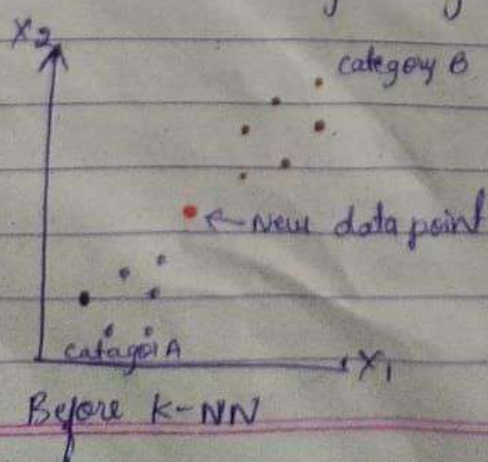 X2
category B
New data point
catagoi A
X1
Before K-NN